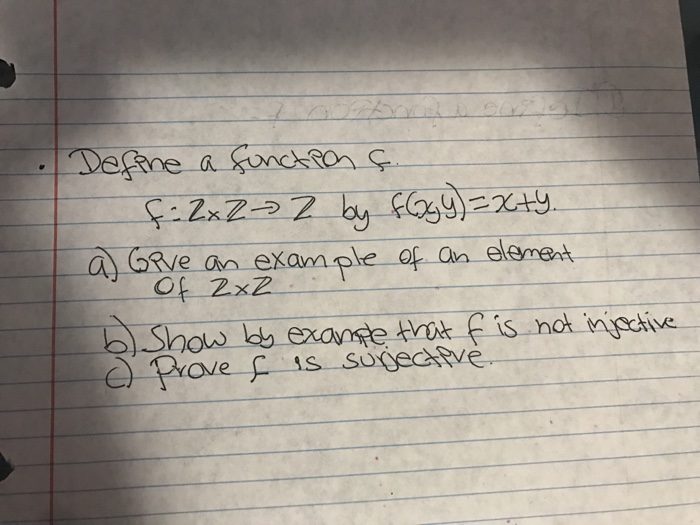 • Define a function f.
f: Z×Z → Z by f(x,y)=x+y.
a) Give an example of an element
Of Z×Z
b) Show by example that f is not injective
c) Prove f is surjective.